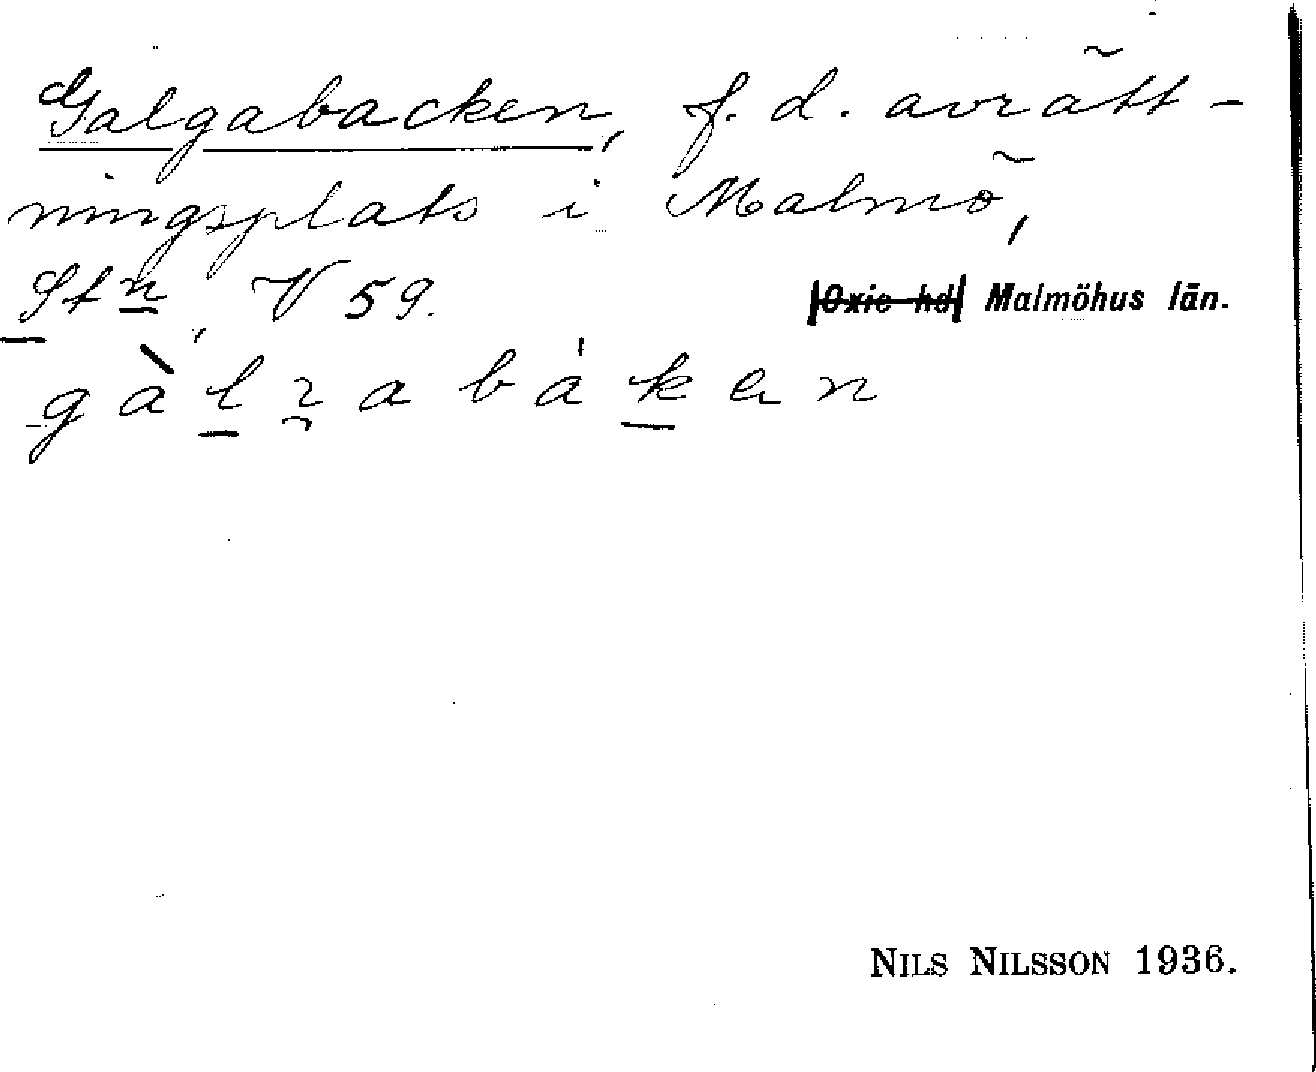 Galgabacken, f. d. avrätt-
ningsplats i Malmö,
Stn, V 59. Oxie hd Malmöhus län.
gàlꝛabáken
NILS NILSSON 1936.